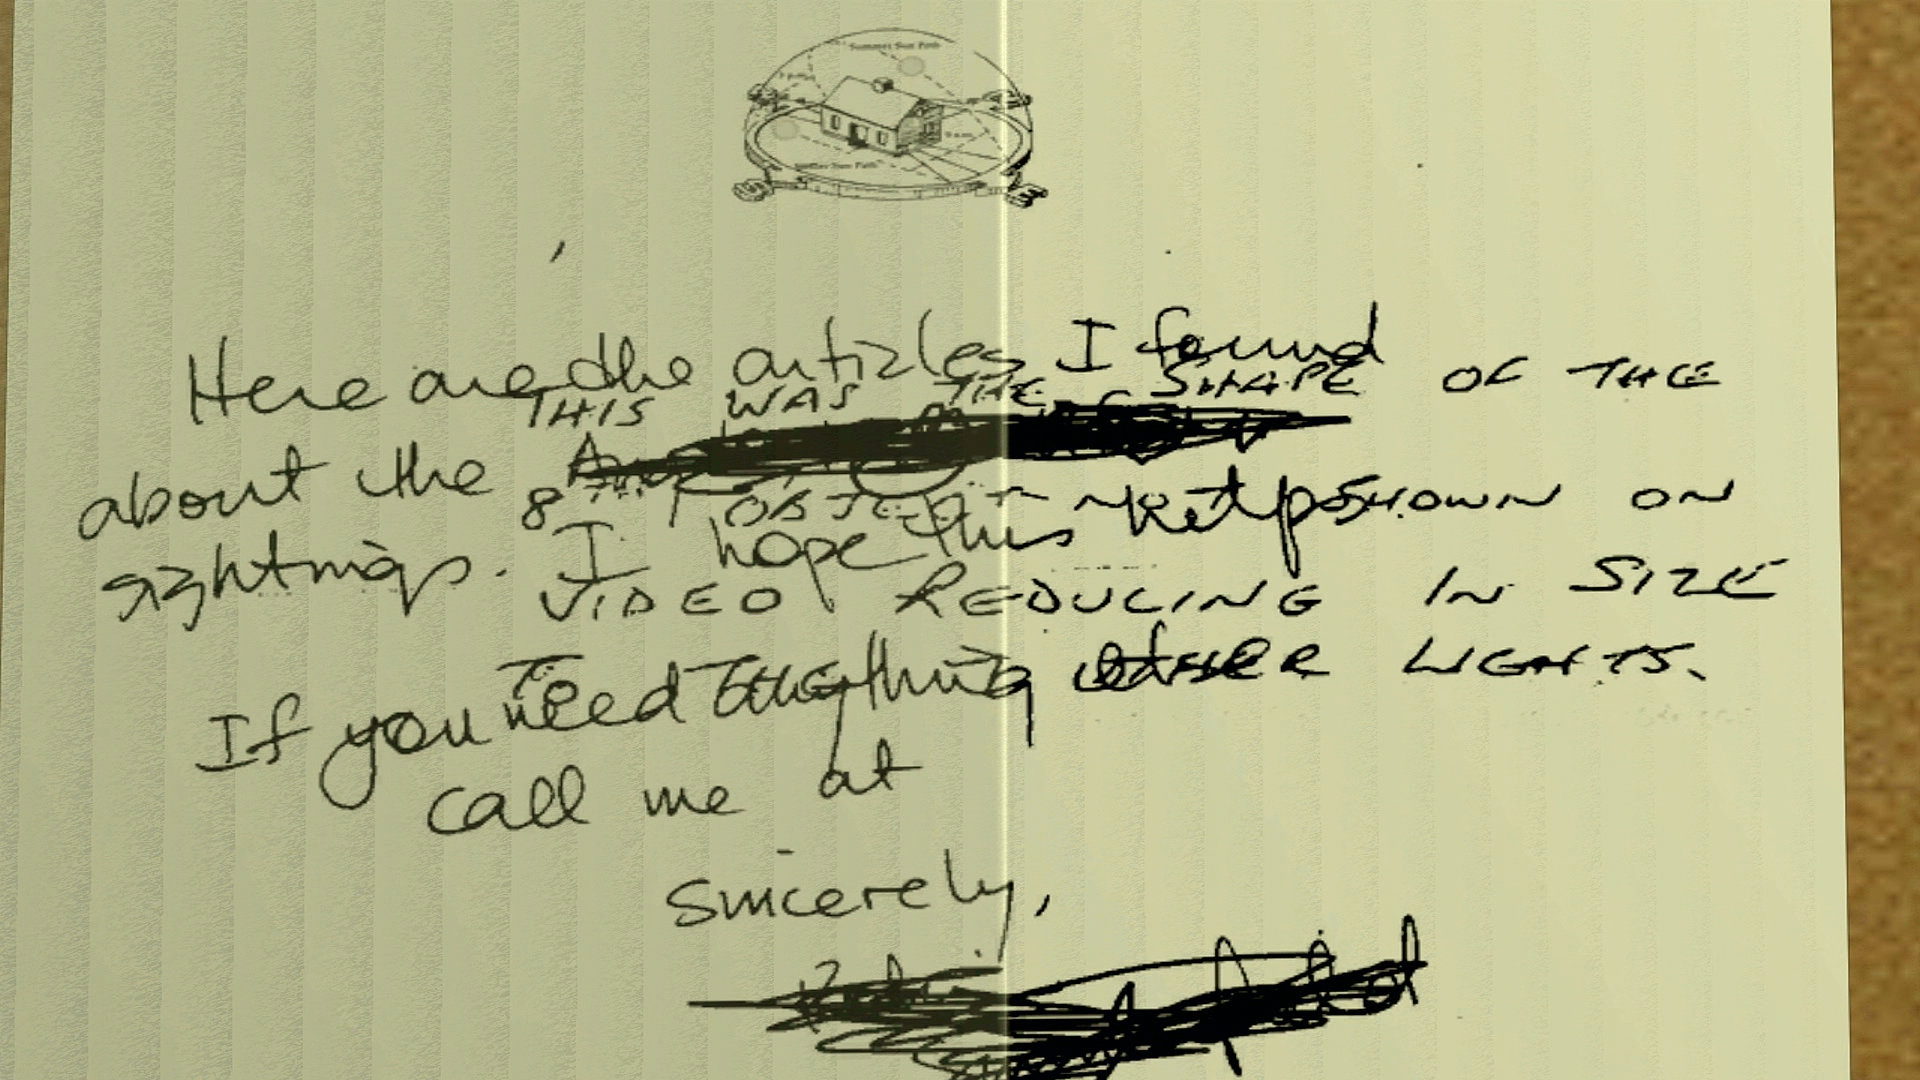 Summer Sun Path
Winter Sun Path
Here are the articles I found
about the
sightings. I hope this helps
If you need anything else
call me at
Sincerely,
THIS WAS THE SHAPE OF THE
OBJECT NOT SHOWN ON
VIDEO. REDUCING IN SIZE
TO THE OTHER LIGHTS.